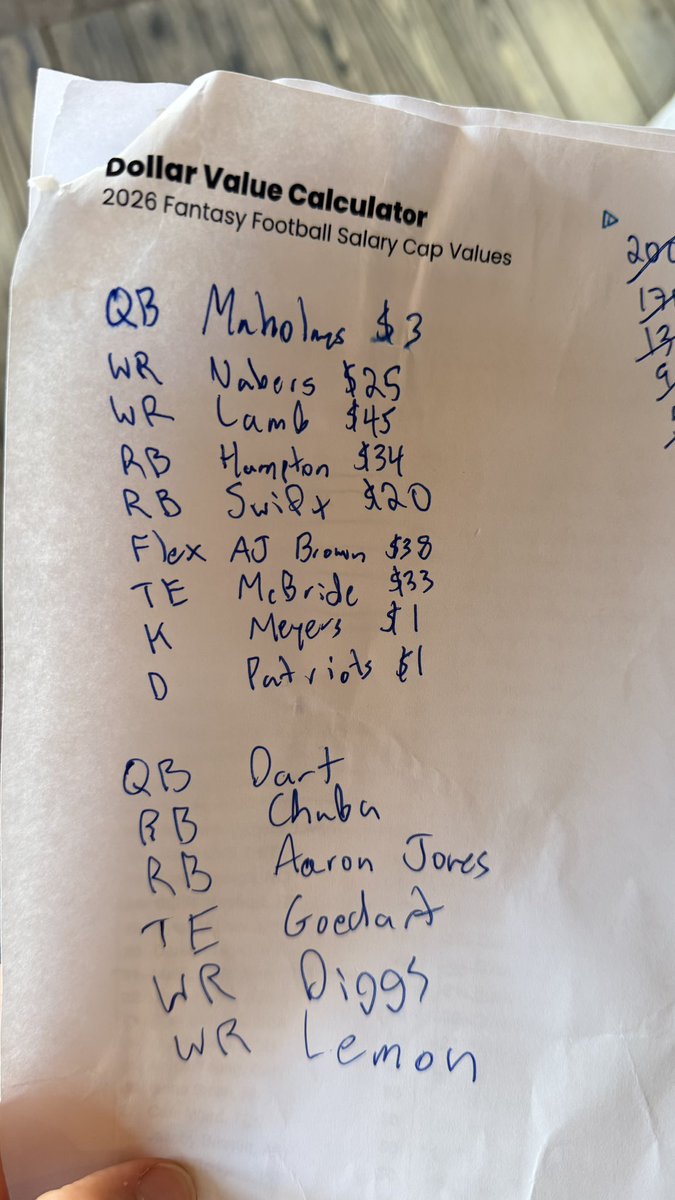 Dollar Value Calculator
2026 Fantasy Football Salary Cap Values
200
QB Mahomes $3
WR Nabers $25
WR Lamb $45
RB Hampton $34
RB Swift $20
Flex AJ Brown $38
TE McBride $33
K Meyers $1
D Patriots $1
QB Dart
RB Chuba
RB Aaron Jones
TE Goedart
WR Diggs
WR Lemon